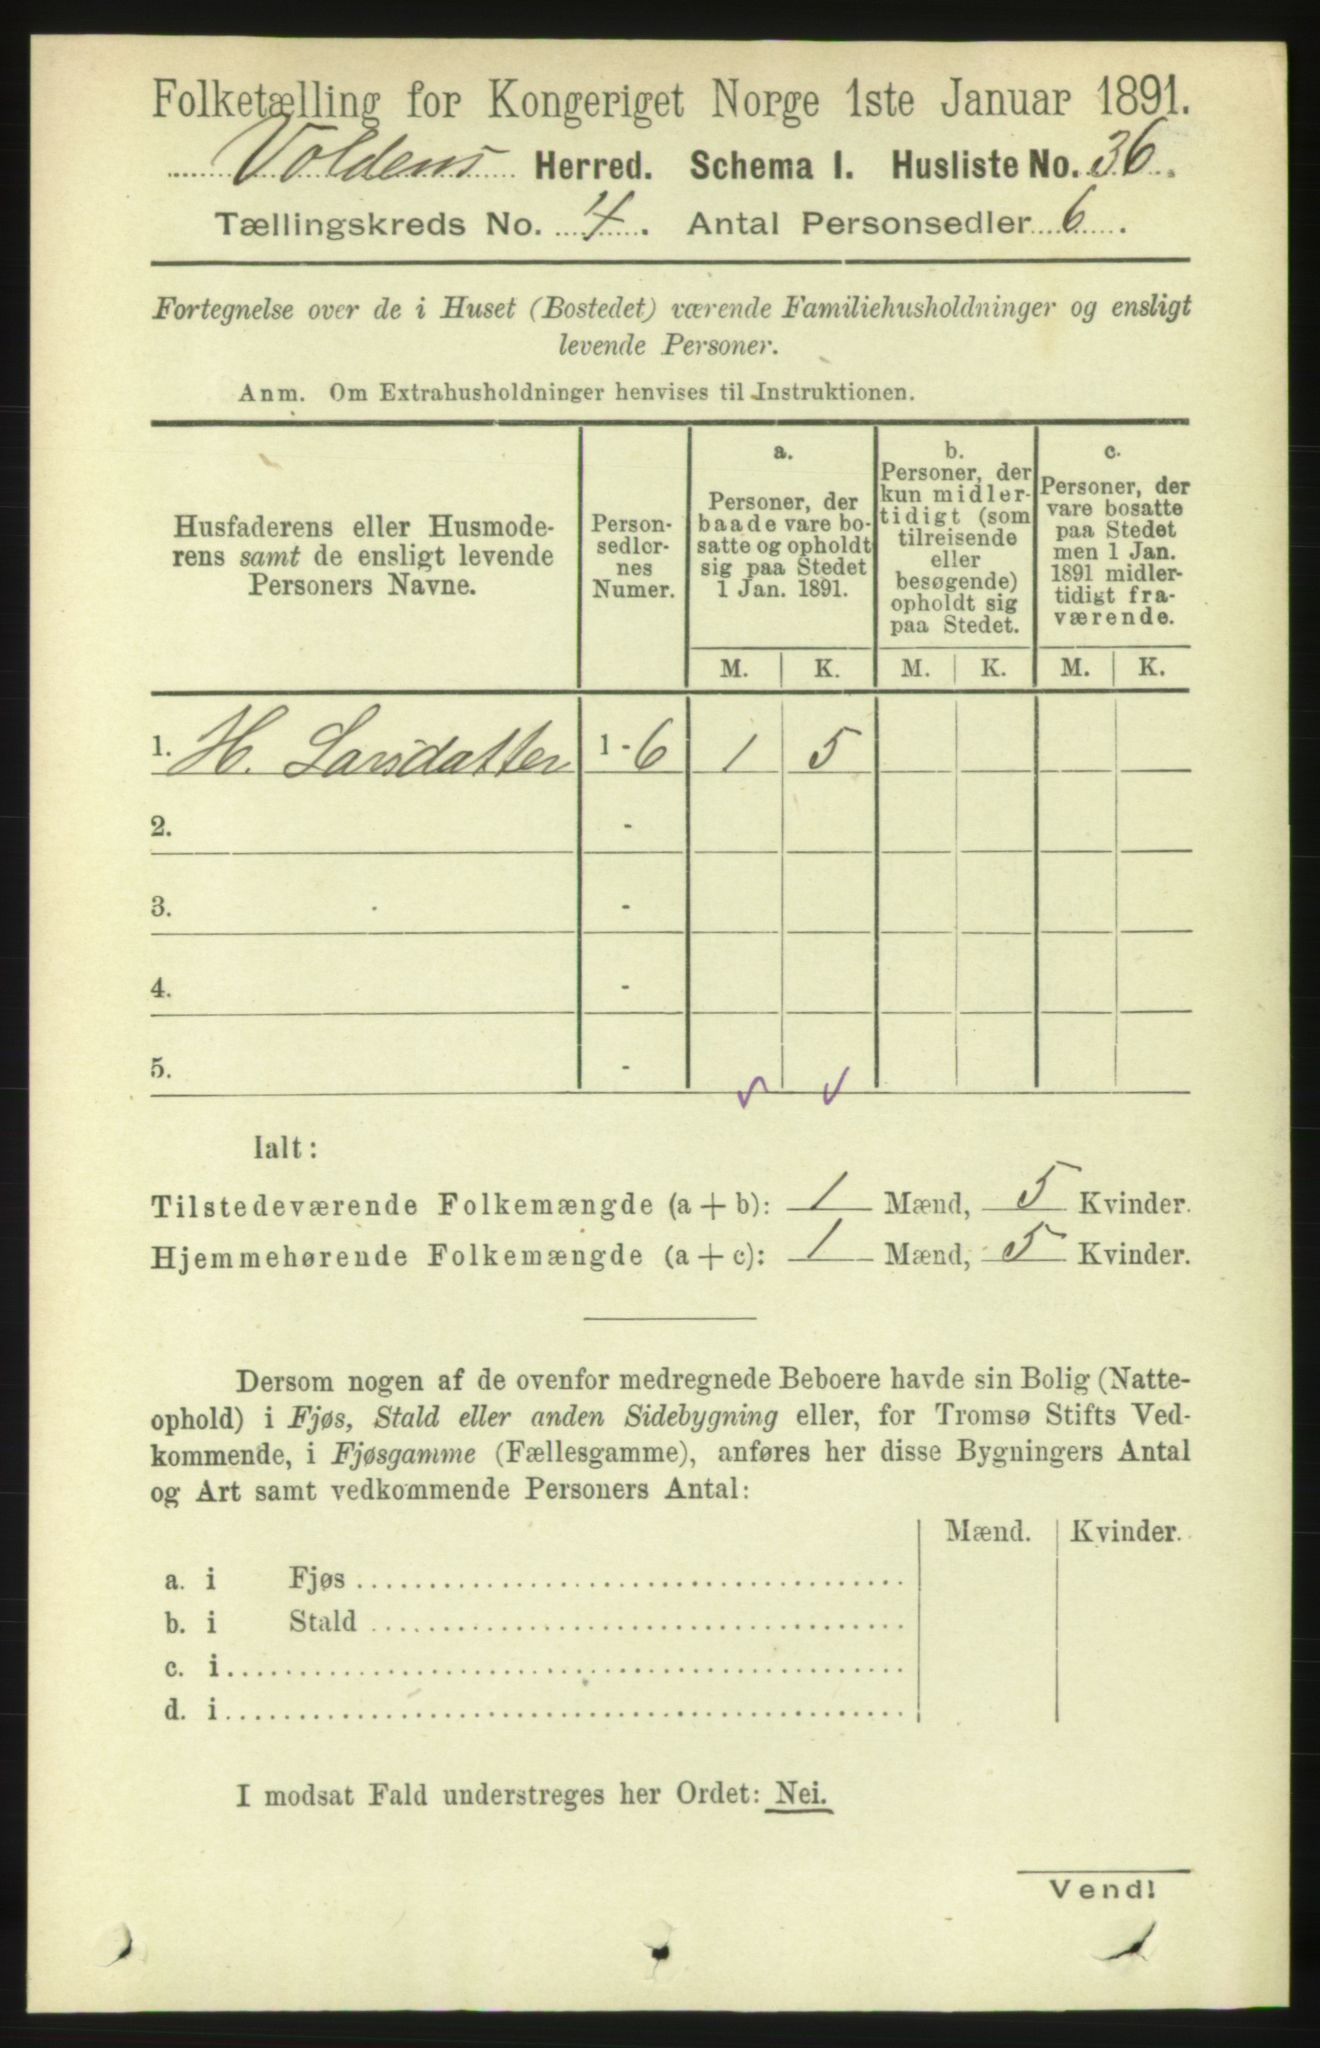 Folketælling for Kongeriget Norge 1ste Januar 1891.
Voldens Herred. Schema I. Husliste No. 36.
Tællingskreds No. 4. Antal Personsedler 6.
Fortegnelse over de i Huset (Bostedet) værende Familiehusholdninger og ensligt
levende Personer.
Anm. Om Extrahusholdninger henvises til Instruktionen.
Husfaderens eller Husmode-
rens samt de ensligt levende
Personers Navne.
Person-
sedler-
nes
Numer.
a.
Personer, der
baade vare bo-
satte og opholdt
sig paa Stedet
1 Jan. 1891.
b.
Personer, der
kun midler-
tidigt (som
tilreisende
eller
besøgende)
opholdt sig
paa Stedet.
c.
Personer, der
vare bosatte
paa Stedet
men 1 Jan.
1891 midler-
tidigt fra-
værende.
M. K. M. K. M. K.
1. H. Larsdatter 1-6 1 5
2. -
3. -
4. -
5. -
Ialt:
Tilstedeværende Folkemængde (a + b): 1 Mænd, 5 Kvinder.
Hjemmehørende Folkemængde (a + c): 1 Mænd, 5 Kvinder.
Dersom nogen af de ovenfor medregnede Beboere havde sin Bolig (Natte-
ophold) i Fjøs, Stald eller anden Sidebygning eller, for Tromsø Stifts Ved-
kommende, i Fjøsgamme (Fællesgamme), anføres her disse Bygningers Antal
og Art samt vedkommende Personers Antal:
Mænd. Kvinder.
a. i Fjøs
b. i Stald
c. i
d. i
I modsat Fald understreges her Ordet: Nei.
Vend!